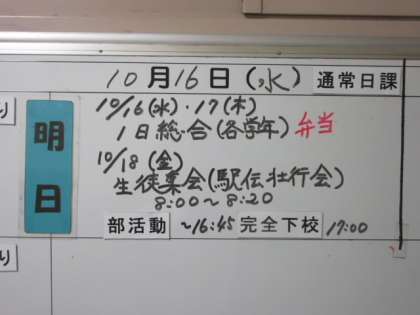 10月16日(水) 通常日課
明日
10/16(水)・17(木)
1日総合(各学年) 弁当
10/18(金)
生徒集会(駅伝壮行会)
8:00〜8:20
部活動 〜16:45 完全下校 17:00
り
り